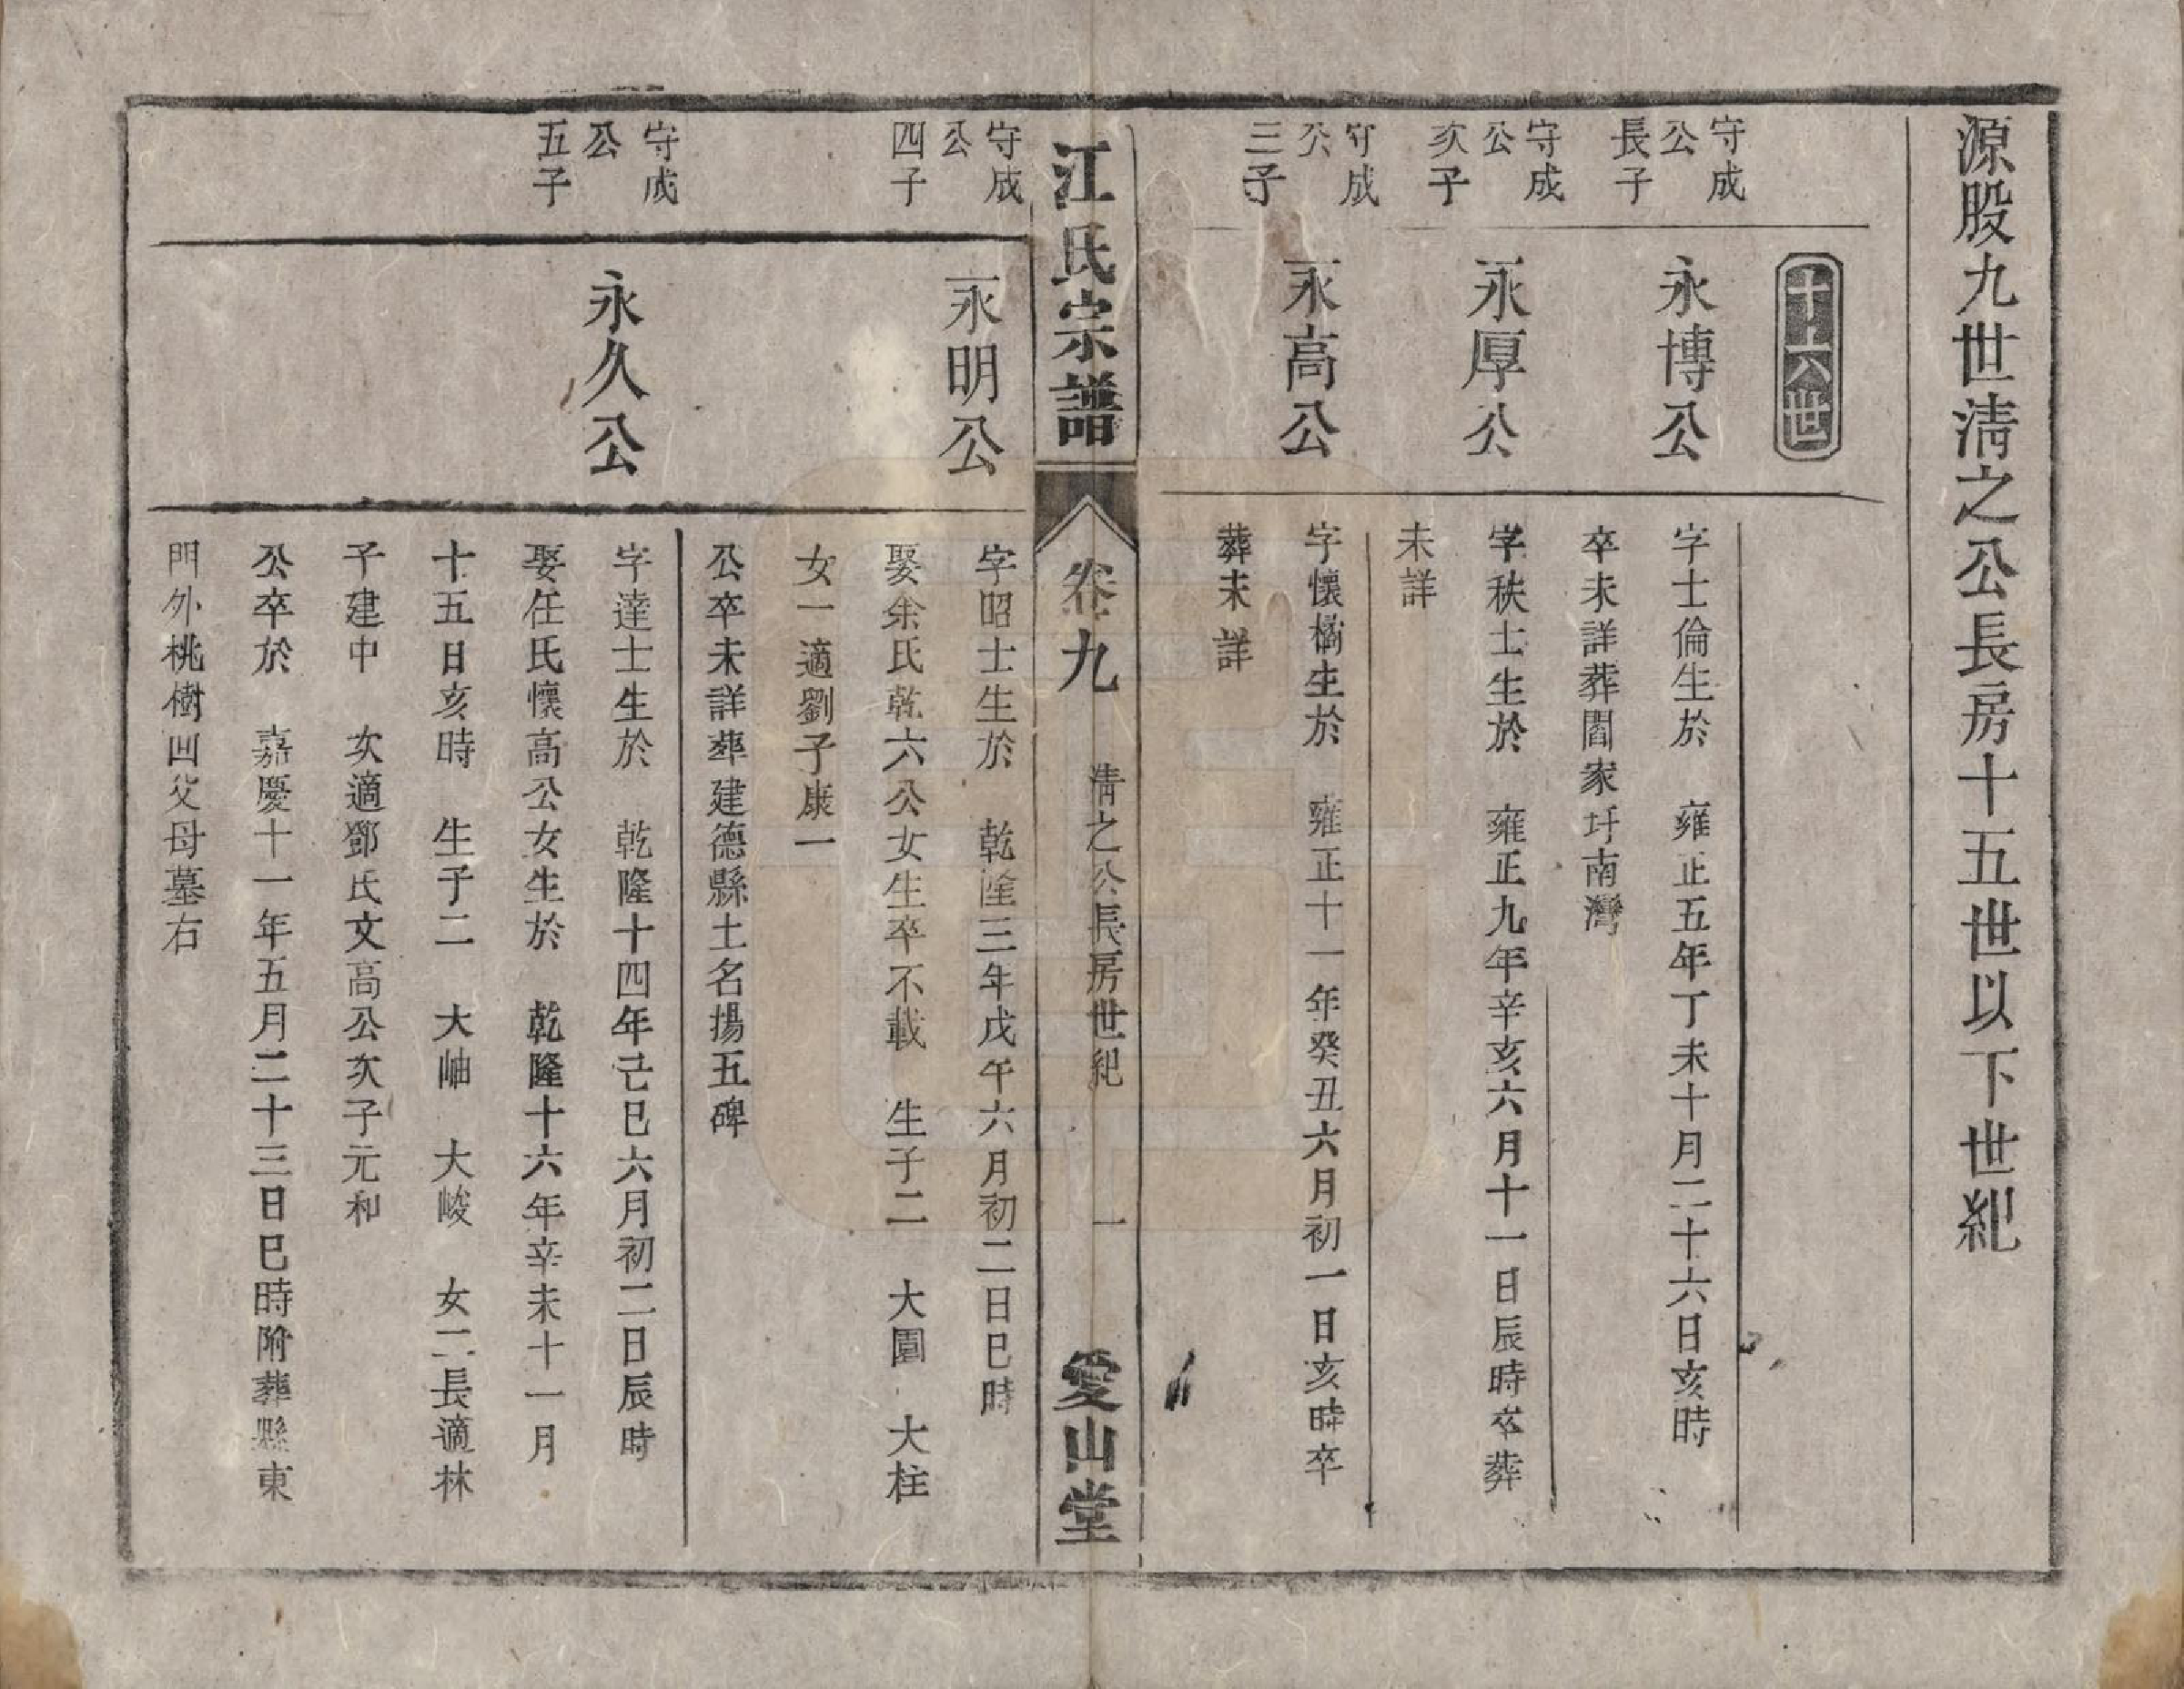 源股九世淸之公長房十五世以下世紀
十六世
守成
公
長子
永博公
字士倫生於　雍正五年丁未十月二十六日亥時
卒未詳葬閻家圩南灣
守成
公
次子
永厚公
字秩士生於　雍正九年辛亥六月十一日辰時卒葬
未詳
守成
公
三子
永高公
字懷橘生於　雍正十一年癸丑六月初一日亥時卒
葬未詳
江氏宗譜
卷九
淸之公長房世紀
一
愛山堂
守成
公
四子
永明公
字昭士生於　乾隆三年戊午六月初二日巳時
娶余氏乾六公女生卒不載　生子二　大園　大柱
女一適劉子康一
公卒未詳葬建德縣土名揚五碑
守成
公
五子
永久公
字達士生於　乾隆十四年己巳六月初二日辰時
娶任氏懷高公女生於　乾隆十六年辛未十一月
十五日亥時　生子二　大岫　大峻　女二長適林
子建中　次適鄧氏文高公次子元和
公卒於　嘉慶十一年五月二十三日巳時附葬縣東
門外桃樹凹父母墓右